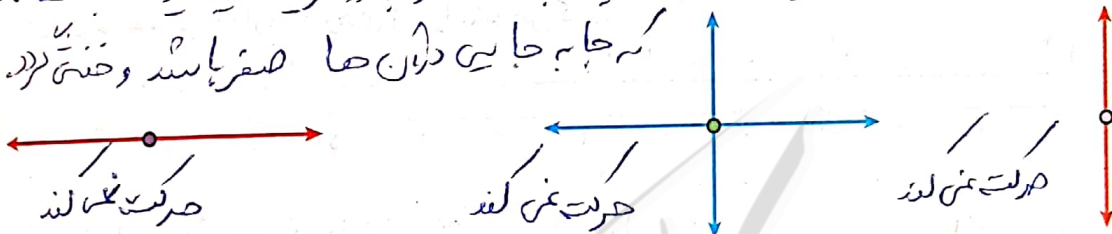 که جا به جایی در آن ها صفر باشد و خنثی گردد.
حرکت نمی کند
حرکت نمی کند
حرکت نمی کند